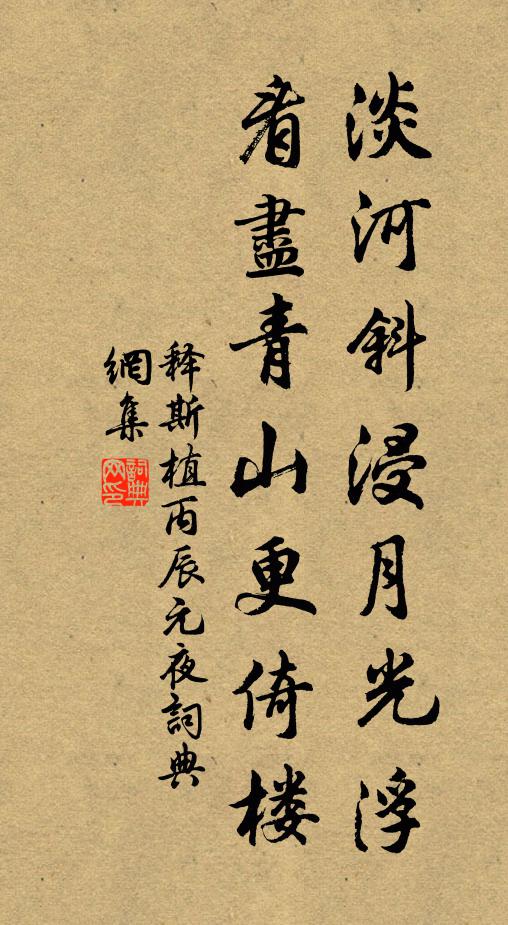 淡河斜浸月光浮
看盡青山更倚楼
释斯植丙辰元夜詞典
網集
詞典
网印